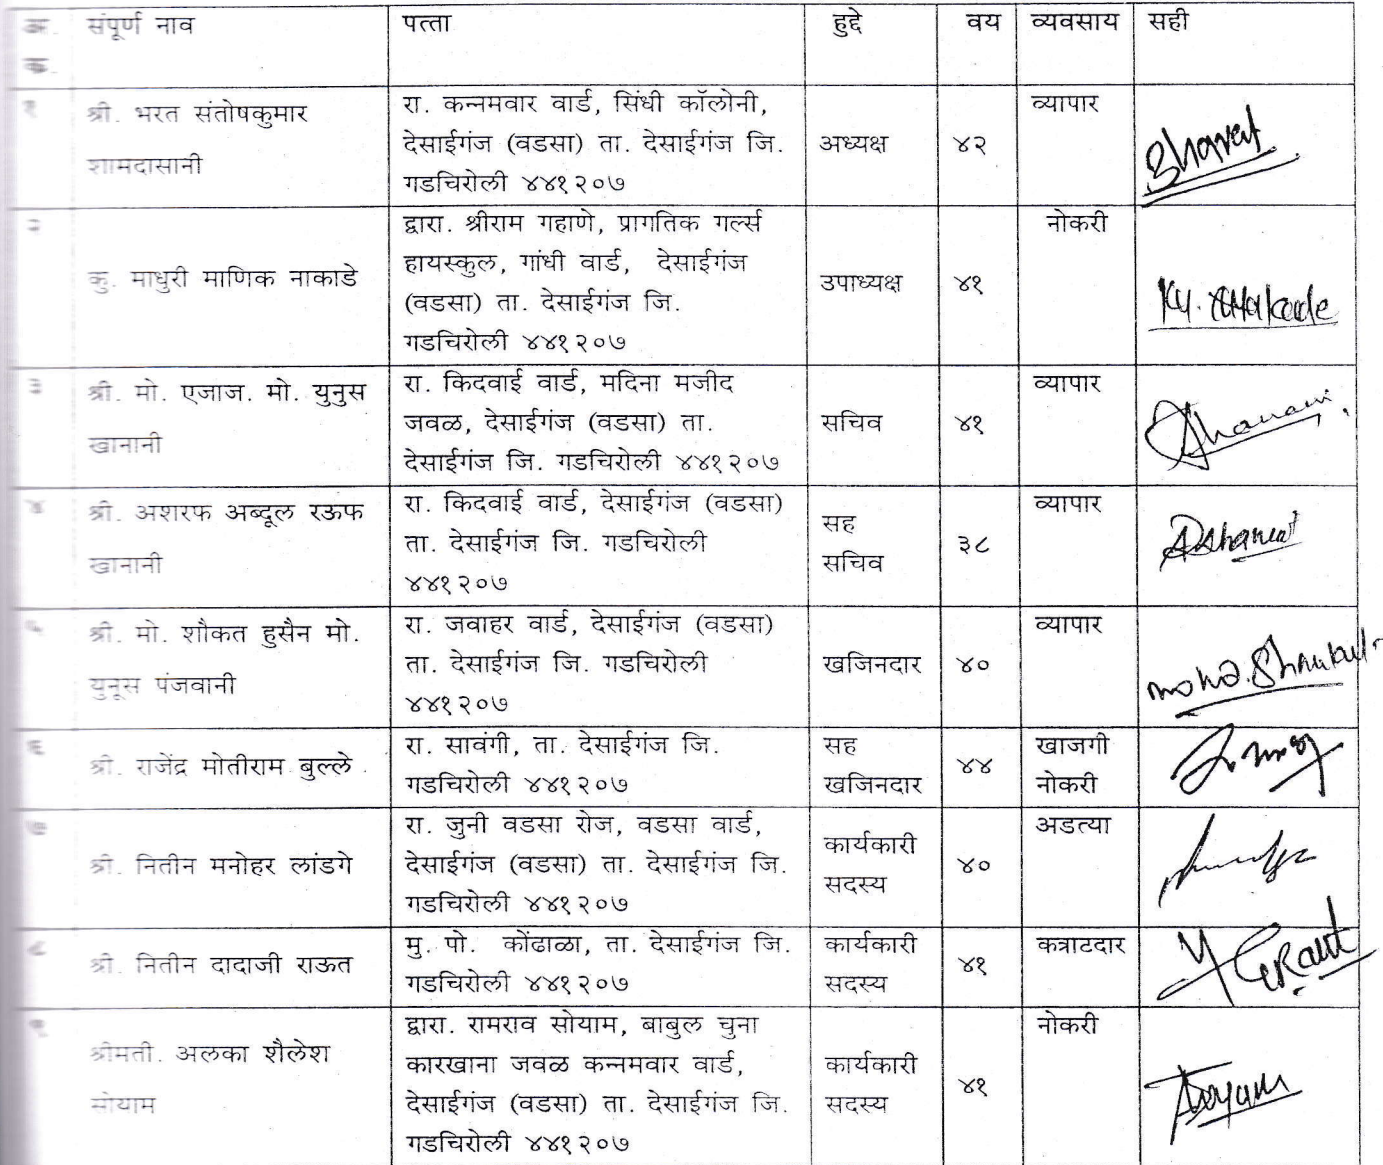 अ. संपूर्ण नाव पत्ता हुद्दे वय व्यवसाय सही
क्र.
१ श्री. भरत संतोषकुमार शामदासानी
रा. कन्नमवार वार्ड, सिंधी कॉलोनी,
देसाईगंज (वडसा) ता. देसाईगंज जि.
गडचिरोली ४४१२०७
अध्यक्ष ४२ व्यापार Bharat
२ कु. माधुरी माणिक नाकाडे
द्वारा. श्रीराम गहाणे, प्रागतिक गर्ल्स
हायस्कुल, गांधी वार्ड, देसाईगंज
(वडसा) ता. देसाईगंज जि.
गडचिरोली ४४१२०७
उपाध्यक्ष ४१ नोकरी
३ श्री. मो. एजाज. मो. युनुस
खानानी
रा. किदवाई वार्ड, मदिना मजीद
जवळ, देसाईगंज (वडसा) ता.
देसाईगंज जि. गडचिरोली ४४१२०७
सचिव ४१ व्यापार
४ श्री. अशरफ अब्दूल रऊफ
खानानी
रा. किदवाई वार्ड, देसाईगंज (वडसा)
ता. देसाईगंज जि. गडचिरोली
४४१२०७
सह
सचिव
३८ व्यापार
५ श्री. मो. शौकत हुसैन मो.
युनूस पंजवानी
रा. जवाहर वार्ड, देसाईगंज (वडसा)
ता. देसाईगंज जि. गडचिरोली
४४१२०७
खजिनदार ४० व्यापार
६ श्री. राजेंद्र मोतीराम बुल्ले
रा. सावंगी, ता. देसाईगंज जि.
गडचिरोली ४४१२०७
सह
खजिनदार
४४
खाजगी
नोकरी
७ श्री. नितीन मनोहर लांडगे
रा. जुनी वडसा रोज, वडसा वार्ड,
देसाईगंज (वडसा) ता. देसाईगंज जि.
गडचिरोली ४४१२०७
कार्यकारी
सदस्य
४० अडत्या
८ श्री. नितीन दादाजी राऊत
मु. पो. कोंढाळा, ता. देसाईगंज जि.
गडचिरोली ४४१२०७
कार्यकारी
सदस्य
४१ कत्राटदार
९ श्रीमती. अलका शैलेश
सोयाम
द्वारा. रामराव सोयाम, बाबुल चुना
कारखाना जवळ कन्नमवार वार्ड,
देसाईगंज (वडसा) ता. देसाईगंज जि.
गडचिरोली ४४१२०७
कार्यकारी
सदस्य
४१ नोकरी